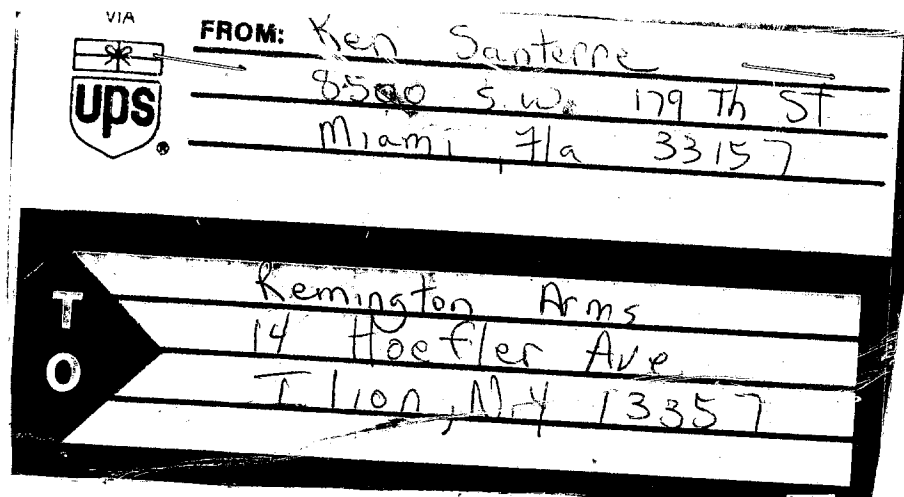 VIA
ups®
FROM: Ken Santerre
8500 S.W. 179 Th ST
Miami, Fla 33157
TO
Remington Arms
14 Hoefler Ave
Ilion, N.Y 13357